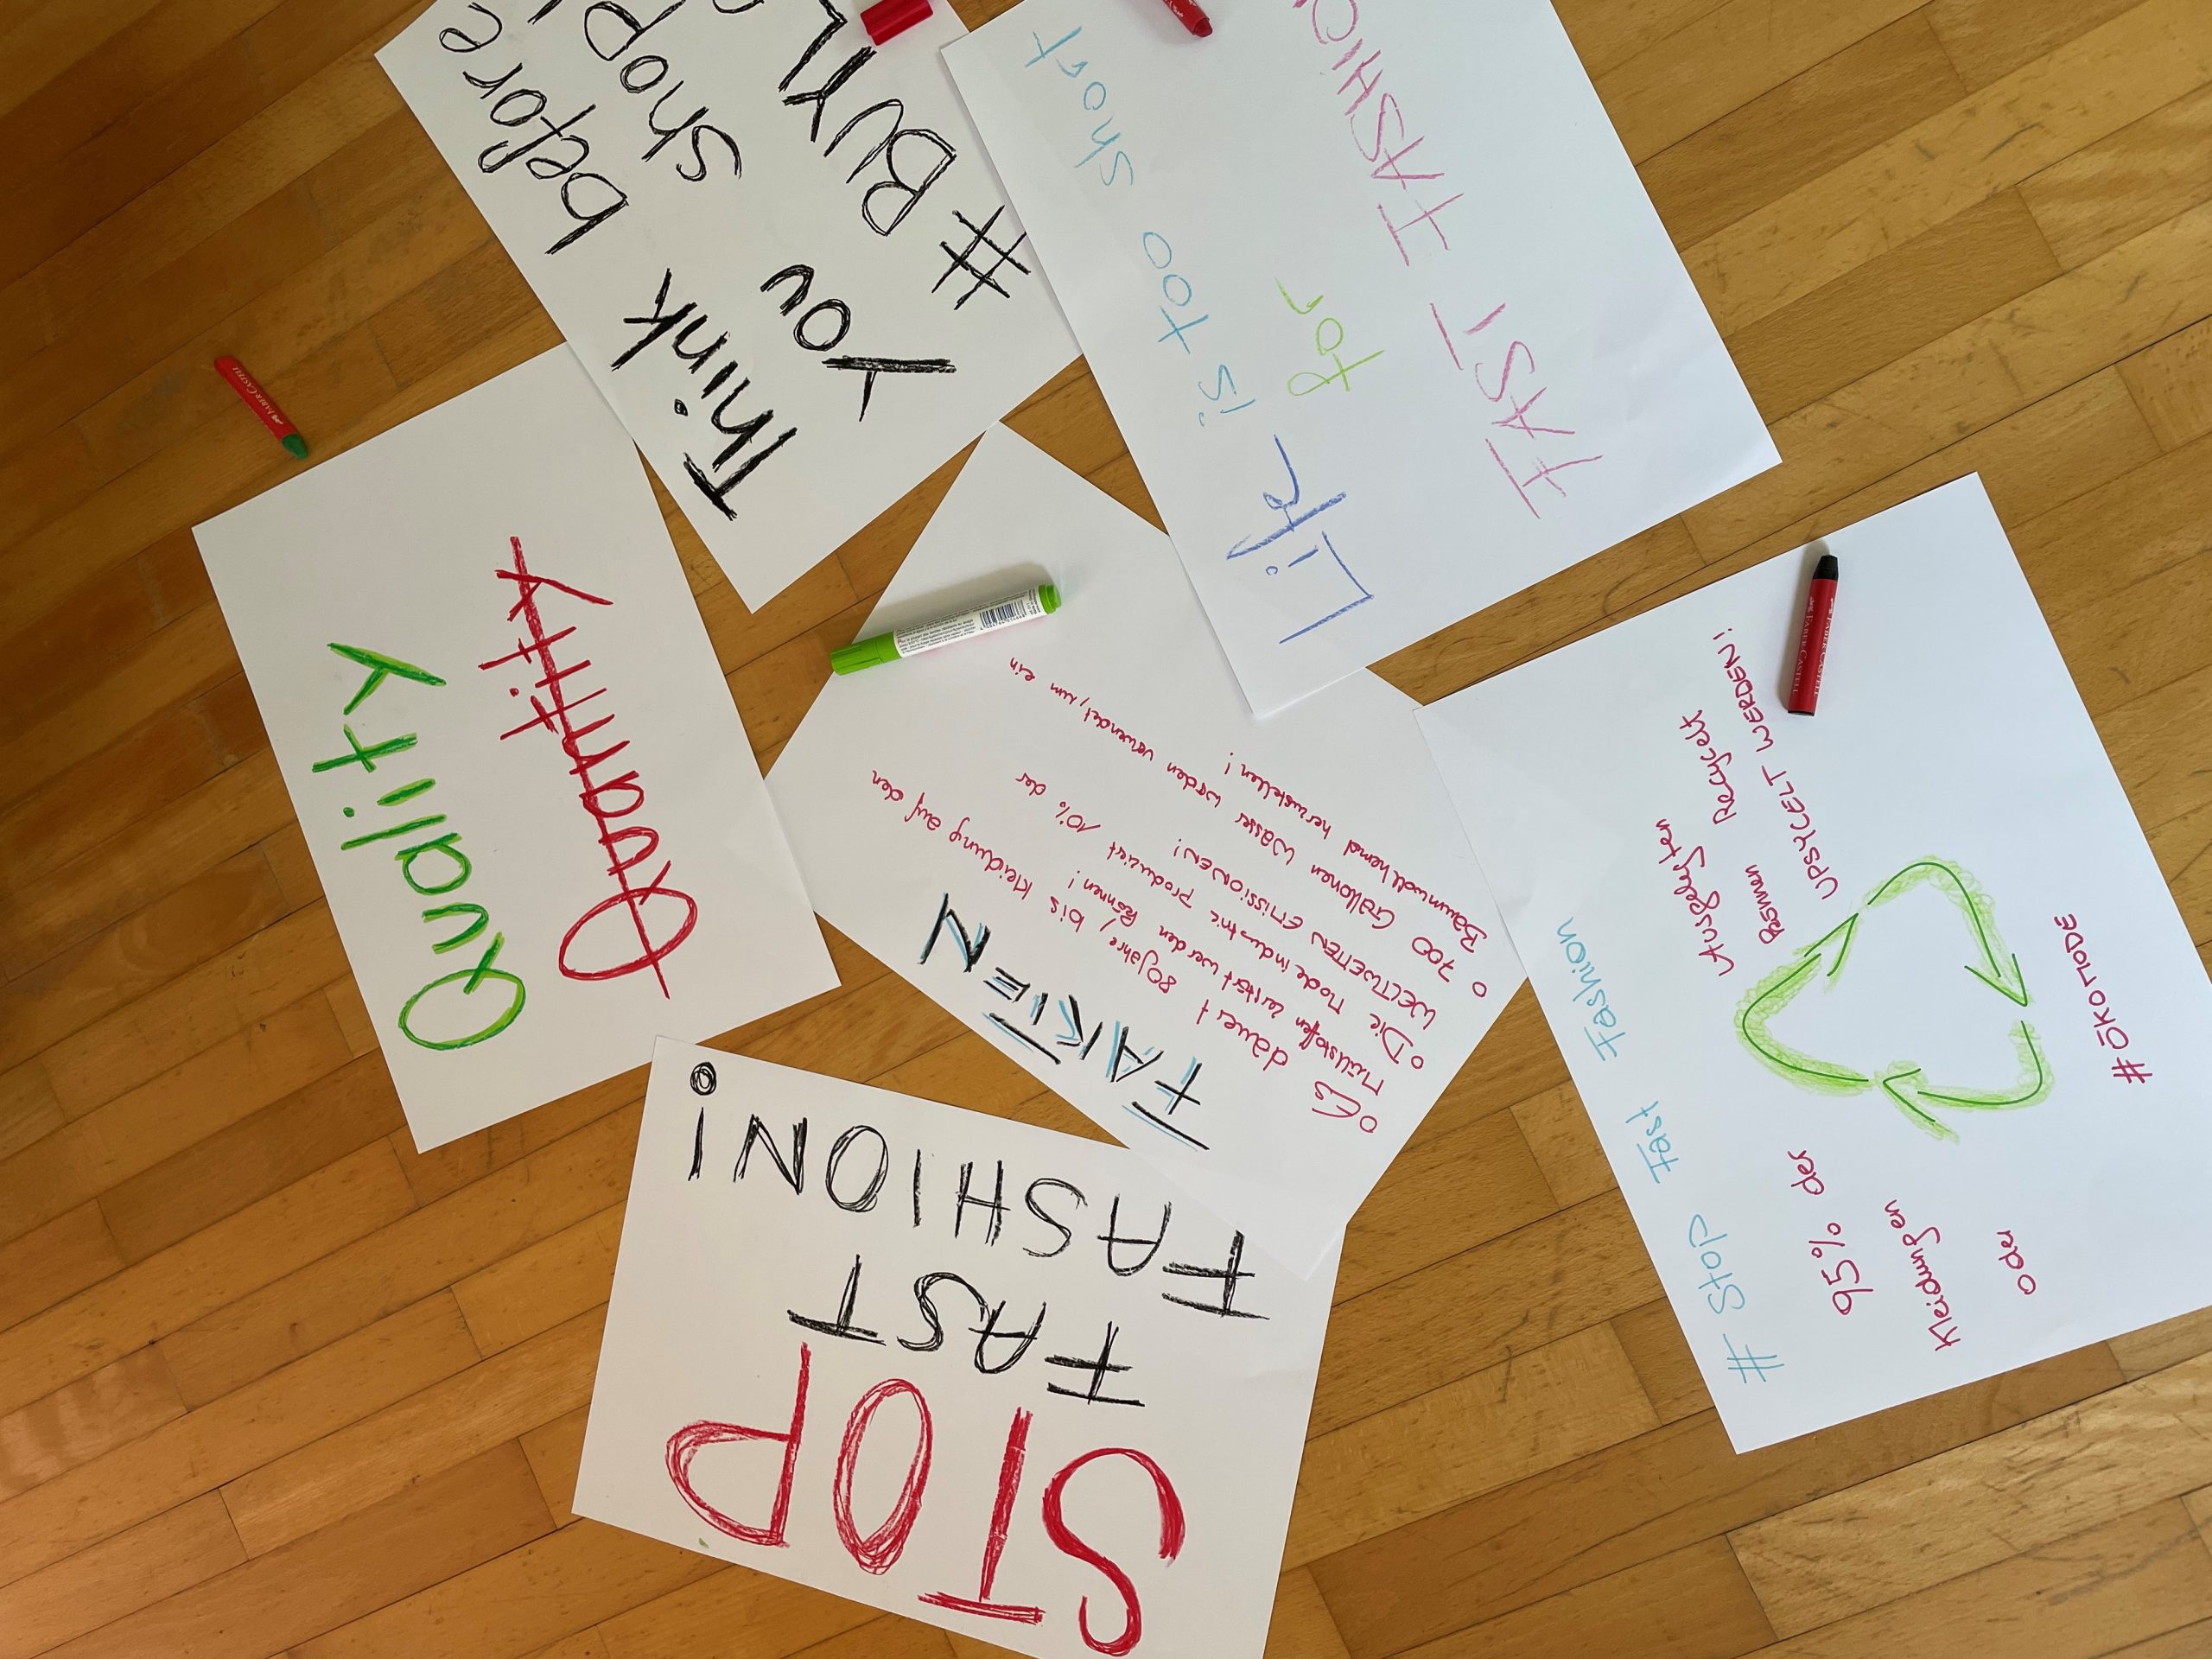 Think before
You shop
#BUY
Life is too short
for
FAST FASHIO
Quality
Quantity
FAKTEN
Es dauert 80 Jahre, bis Kleidung auf den
Müllstoffen zerstört werden können!
Die Mode industrie produziert 10% der
WELTWEITEN EMISSIONEN!
700 Gallonen Wasser werden verwendet, um ein
Baumwollhemd herzustellen!
# Stop Fast Fashion
95% der Ausgelegten
Kleidungen können Recycelt
oder UPSYCELT WERDEN!
#ÖKOMODE
STOP
FAST
FASHION!
FABER-CASTELL
FABER-CASTELL